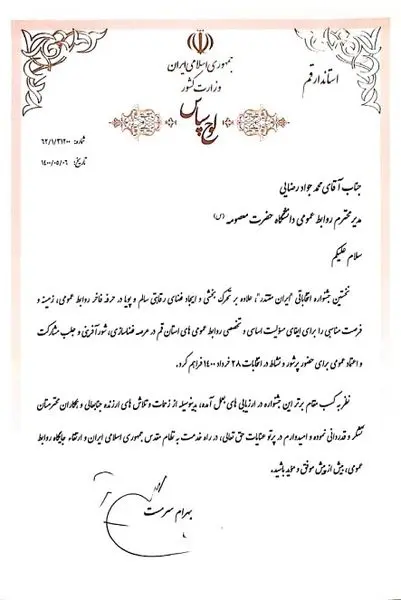 جمهوری اسلامی ایران
وزارت کشور
استاندار قم
لوح سپاس
شماره: ۶۲/۱/۳۱۲۰۰
تاریخ: ۱۴۰۰/۰۵/۰۶
جناب آقای محمد جواد رضایی
مدیر محترم روابط عمومی دانشگاه حضرت معصومه (س)
سلام علیکم
نخستین جشنواره انتخاباتی "ایران مقتدر"، علاوه بر تحرک بخشی و ایجاد فضای رقابتی سالم و پویا در حرفه فاخر روابط عمومی، زمینه و
فرصت مناسبی را برای ایفای مسؤلیت اساسی و تخصصی روابط عمومی های استان قم در عرصه فضاسازی، شورآفرینی و جلب مشارکت
و اعتماد عمومی برای حضور پرشور و نشاط در انتخابات ۲۸ خرداد ۱۴۰۰ فراهم کرد.
نظر به کسب مقام برتر این جشنواره در ارزیابی های بعمل آمده، بدینوسیله از زحمات و تلاش های ارزنده جنابعالی و همکاران محترمتان
تشکر و قدردانی نموده و امیدوارم در پرتو عنایات حق تعالی، در راه خدمت به نظام مقدس جمهوری اسلامی ایران و ارتقاء جایگاه روابط
عمومی، بیش از پیش موفق و مؤید باشید.
بهرام سرمست